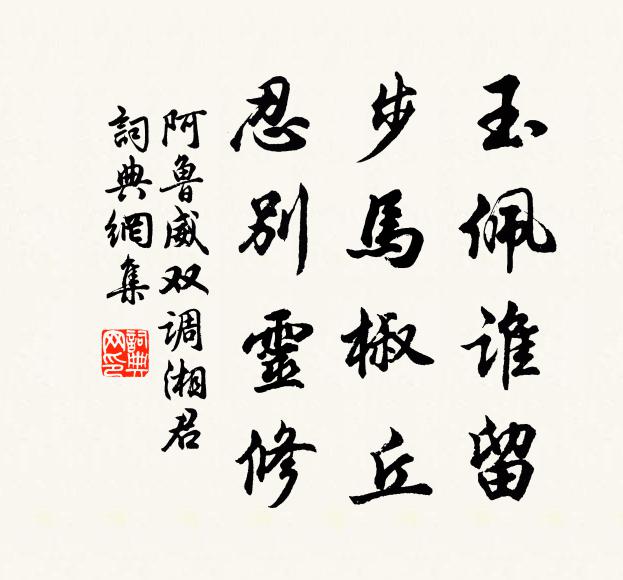 玉佩谁留
步馬椒丘
忍别靈修
阿鲁威双调湘君
詞典網集
詞典
网印